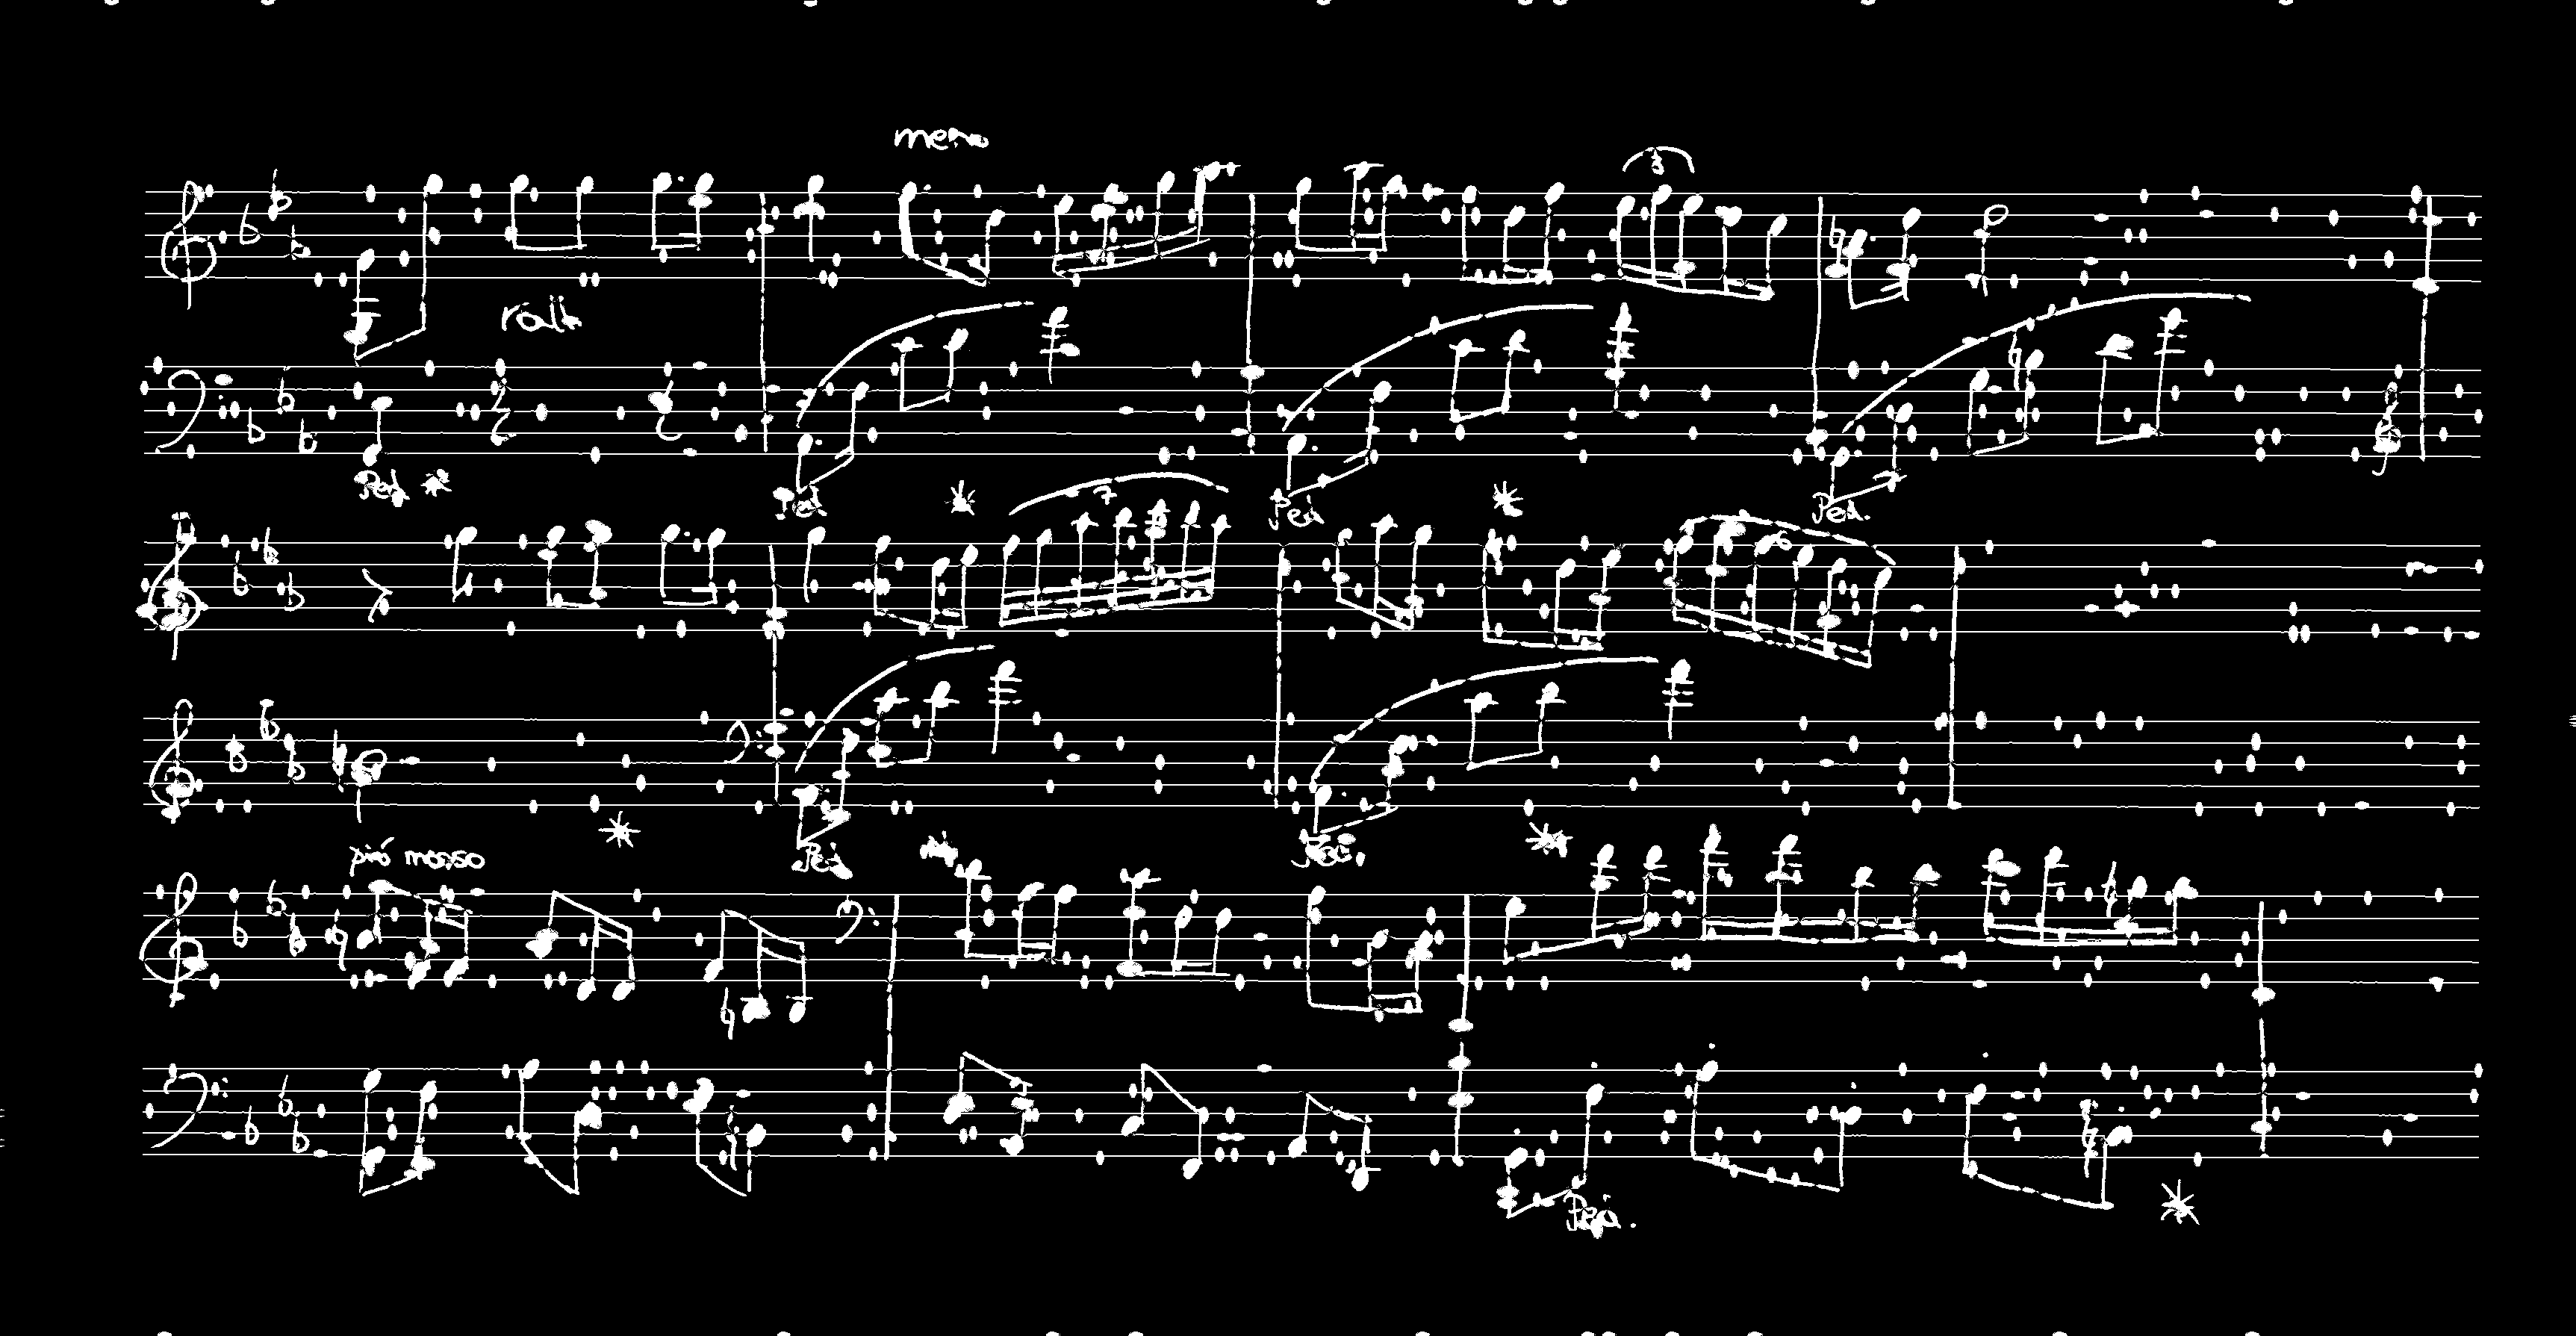 meno
3
rall
Ped
Ped
7
Ped
Ped.
6
Ped
Ped.
più mosso
Ped.